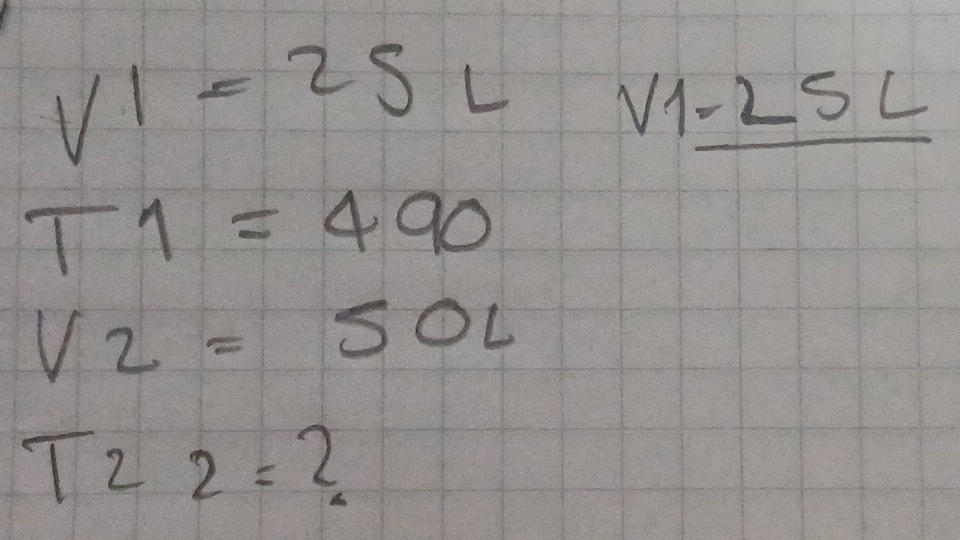 V1 = 25 L V1-25 L
T1 = 490
V2 = 50L
T2 2 = ?